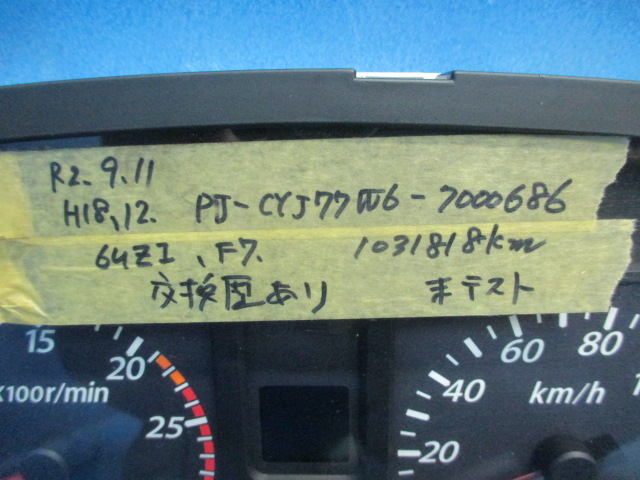 R2.9.11
H18.12. PJ-CYJ77W6-7000686
6UZ1、F7. 1031818km
交換歴あり 未テスト
15 20 25
x100r/min
20 40 60 80
km/h